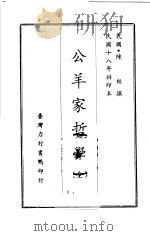 民國•陳柱撰
民國十八年排印本
公羊家哲學(全)
臺灣力行書局印行
www.tushu007.com